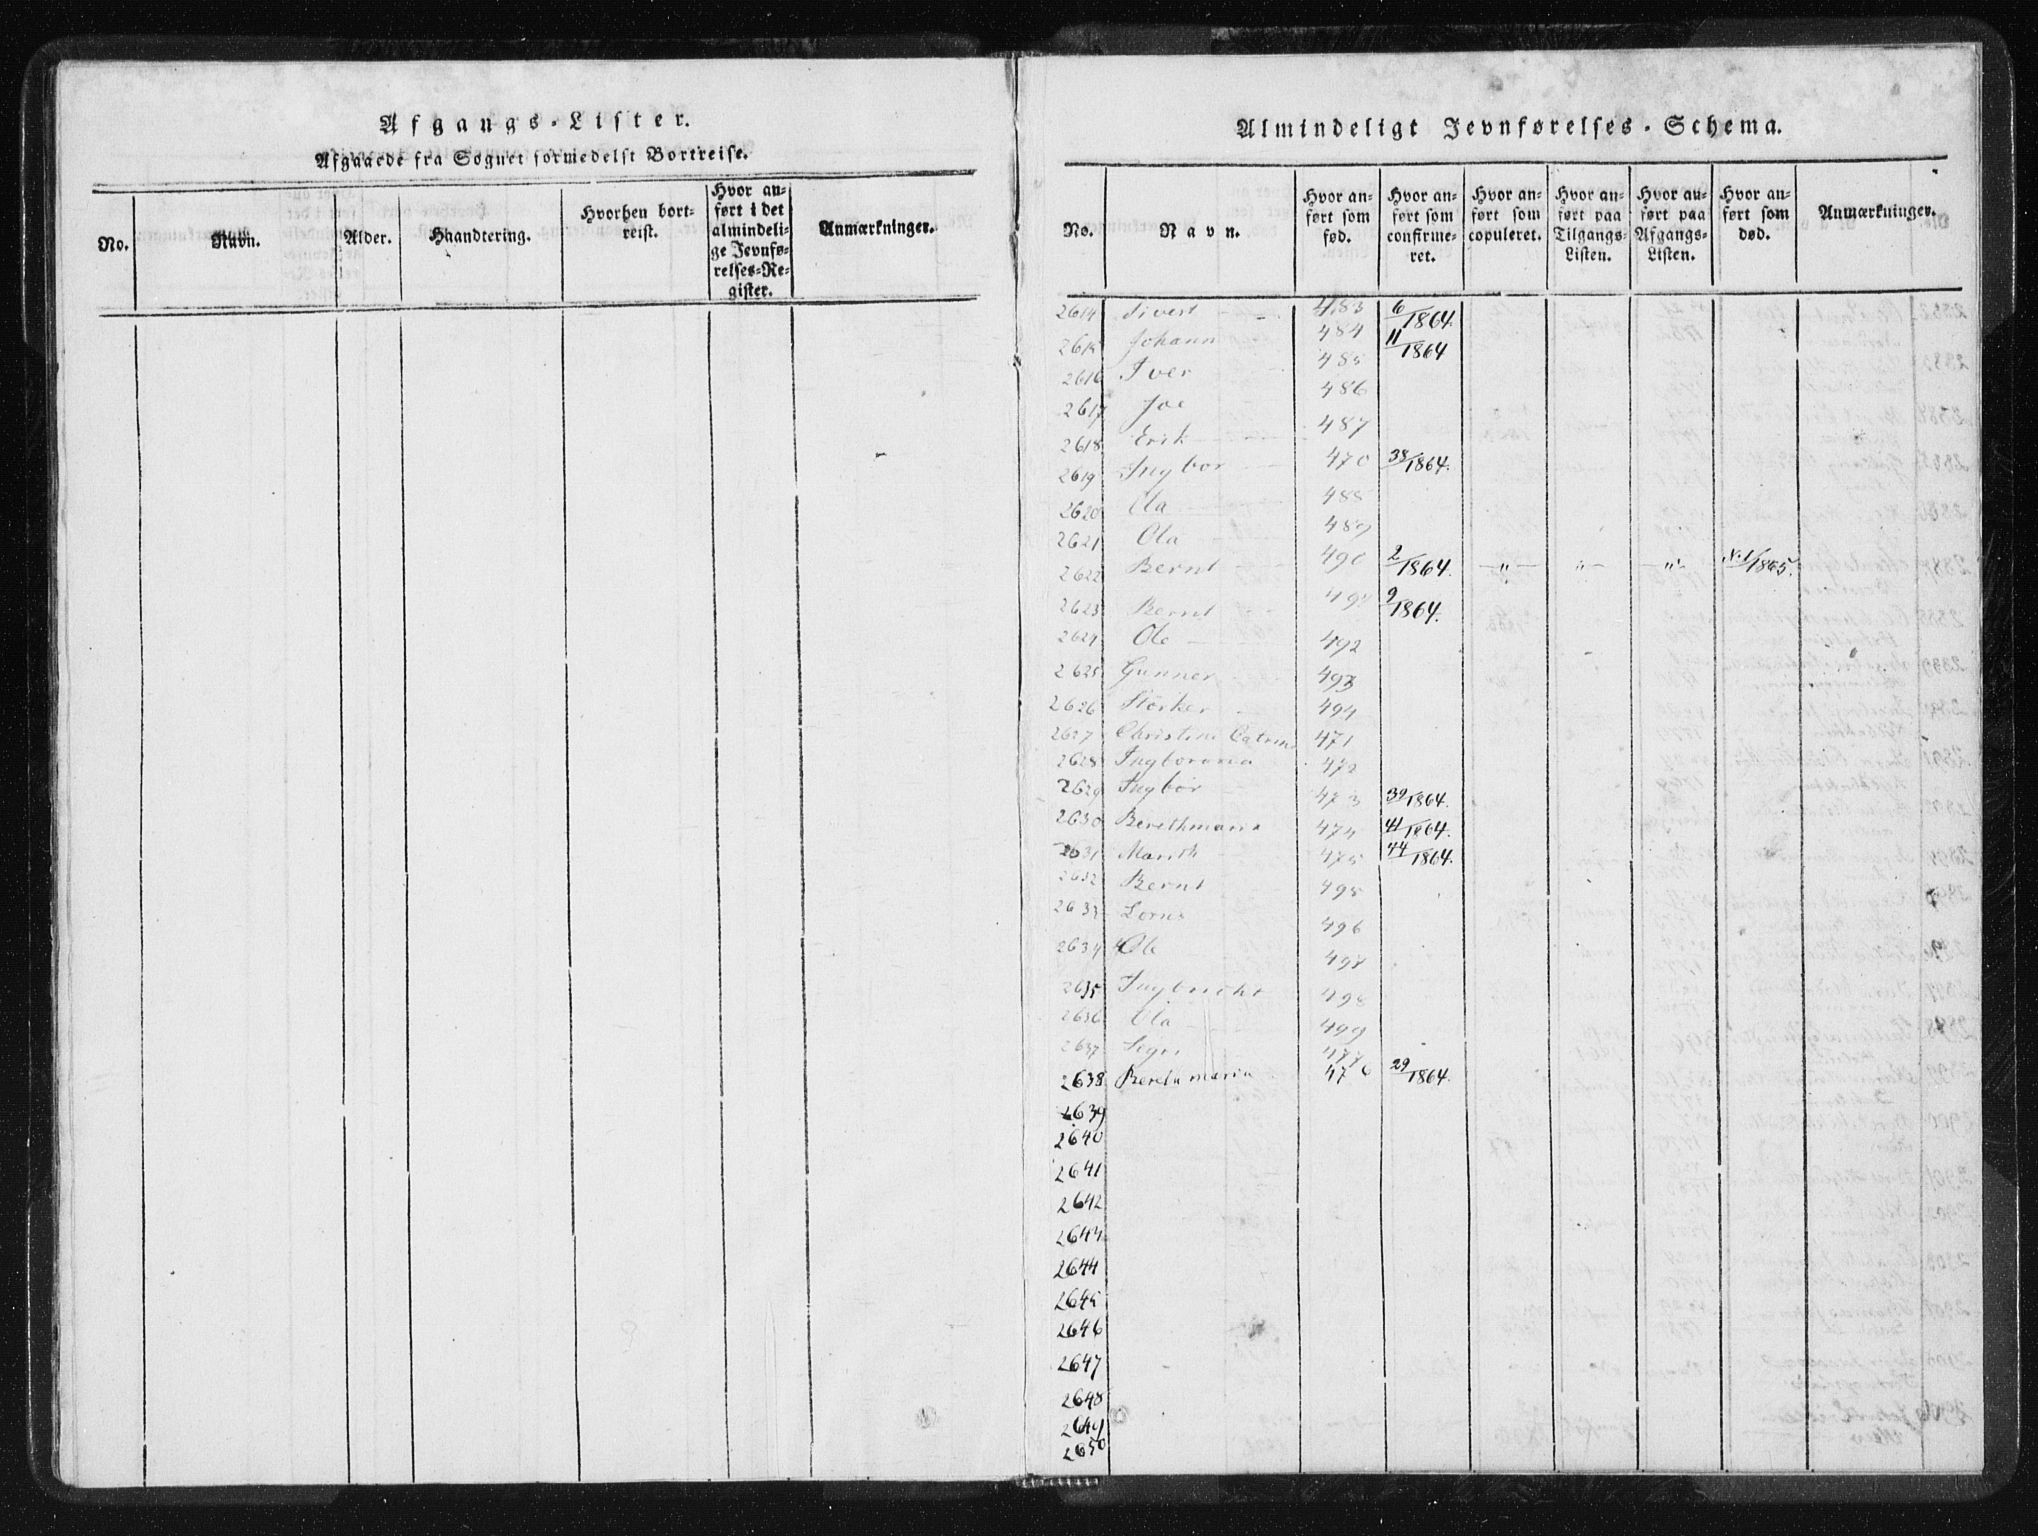 Afgangs-Lister.
Afgaaede fra Sognet formedelst Bortreise.
No.
Navn.
Alder.
Haandtering.
Hvorhen bort-
reist.
Hvor an-
ført i det
almindeli-
ge Jevnfø-
relses-Re-
gister.
Anmærkninger.
Almindeligt Jevnførelses-Schema.
No.
Navn.
Hvor an-
ført som
fød.
Hvor an-
ført som
confirme-
ret.
Hvor an-
ført som
copuleret.
Hvor an-
ført paa
Tilgangs-
Listen.
Hvor an-
ført paa
Afgangs-
Listen.
Hvor an-
ført som
død.
Anmærkninger.
2614 Sivert 483 6/1864.
2615 Johann 484 11/1864
2616 Iver 485
2617 Joe 486
2618 Erik 487
2619 Ingbor 470 38/1864.
2620 Ola 488
2621 Ola 489
2622 Bernt 490 2/1864. " " " N.1/1865.
2623 Bernt 491 9/1864.
2624 Ole 492
2625 Gunner 493
2626 Störker 494
2627 Christine Catrine 471
2628 472
2629 Ingbor 473 39/1864.
2630 Berethmaria 474 41/1864.
2631 Marith 475 44/1864.
2632 Bernt 495
2633 Lorns 496
2634 Ole 497
2635 Ingbricht 498
2636 Ola 499
2637 477
2638 Beretamaria 476 29/1864.
2639
2640
2641
2642
2643
2644
2645
2646
2647
2648
2649
2650